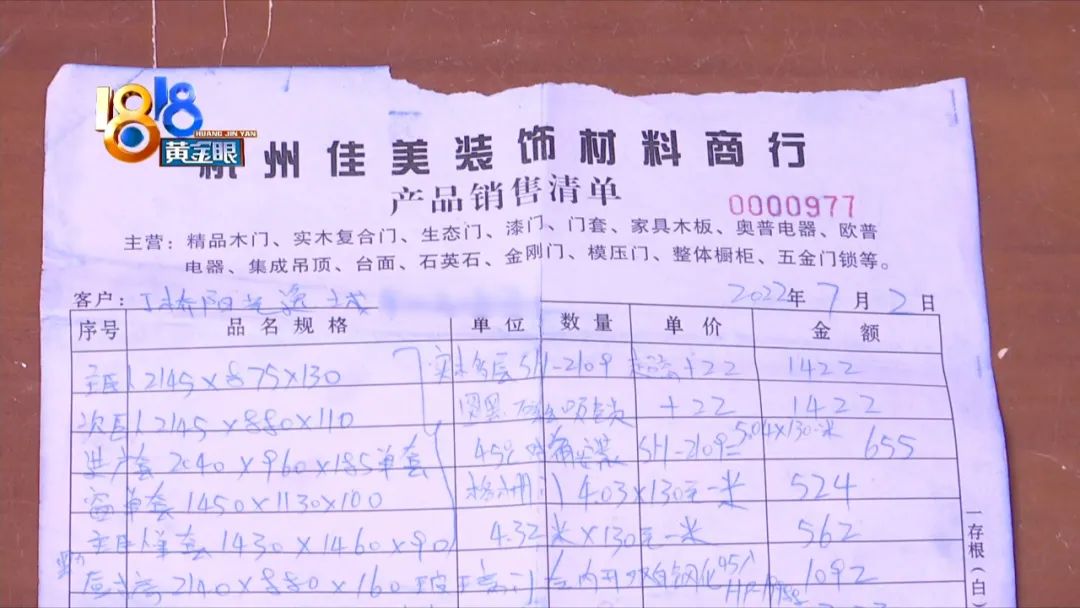 1818
HUANG JIN YAN
黄金眼
杭州佳美装饰材料商行
产品销售清单
0000977
主营：精品木门、实木复合门、生态门、漆门、门套、家具木板、奥普电器、欧普
电器、集成吊顶、台面、石英石、金刚门、模压门、整体橱柜、五金门锁等。
客户：丁桥阳光逸城 2022年7月2日
序号 品名规格 单位 数量 单价 金额
主卧 2145×875×130 实木多层 SH-2109 +22 1422
次卧 2145×880×110 +22 1422
进户套 2040×960×185单套 45° SH-2109 5.04×130·米 655
窗单套 1450×1130×100 4.03×130元一米 524
主卧 单套 1430×1460×90 4.32米×130元一米 562
2140×880×160 内开 钢化 1092
一存根（白）